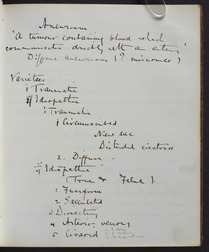 Aneurism
"A tumour containing blood which
communicates directly with an artery"
Diffuse aneurisms (? misnomer)
Varieties
i Traumatic
ii Idiopathic
i Traumatic
1 Circumscribed
New sac
Distended cicatrix
2. Diffuse
ii Idiopathic
(True & False)
1. Fusiform
2. Sacculated
3 Dissecting
4 Arterio-venous
5 Cirsoid